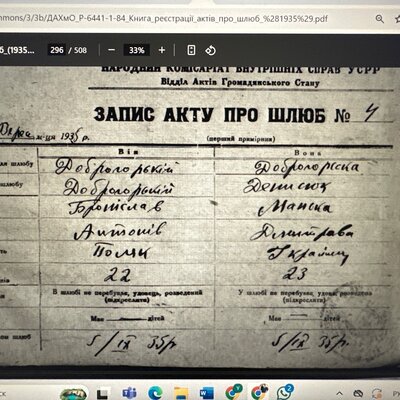 mmons/3/3b/ДАХмО_Р-6441-1-84_Книга_реєстрації_актів_про_шлюб_%281935%29.pdf
6_(1935... 296 / 508 — 33% +
НАРОДНИЙ КОМІСАРІЯТ ВНУТРІШНІХ СПРАВ УСРР
Відділ Актів Громадянського Стану
ЗАПИС АКТУ ПРО ШЛЮБ № 4
місяця 1935 р. (перший примірник)
Він Вона
шлюбу Доброгорський
шлюбу Доброгорський Денисюк
Броніслав
Антонів Дмитрова
Поляк
22 23
В шлюбі не перебував, удовець, розведений У шлюбі не перебувала, удова, розведена
(підкреслити) (підкреслити)
Має — дітей Має — дітей
шлюб 5/IX 35р. 5/IX 35р.